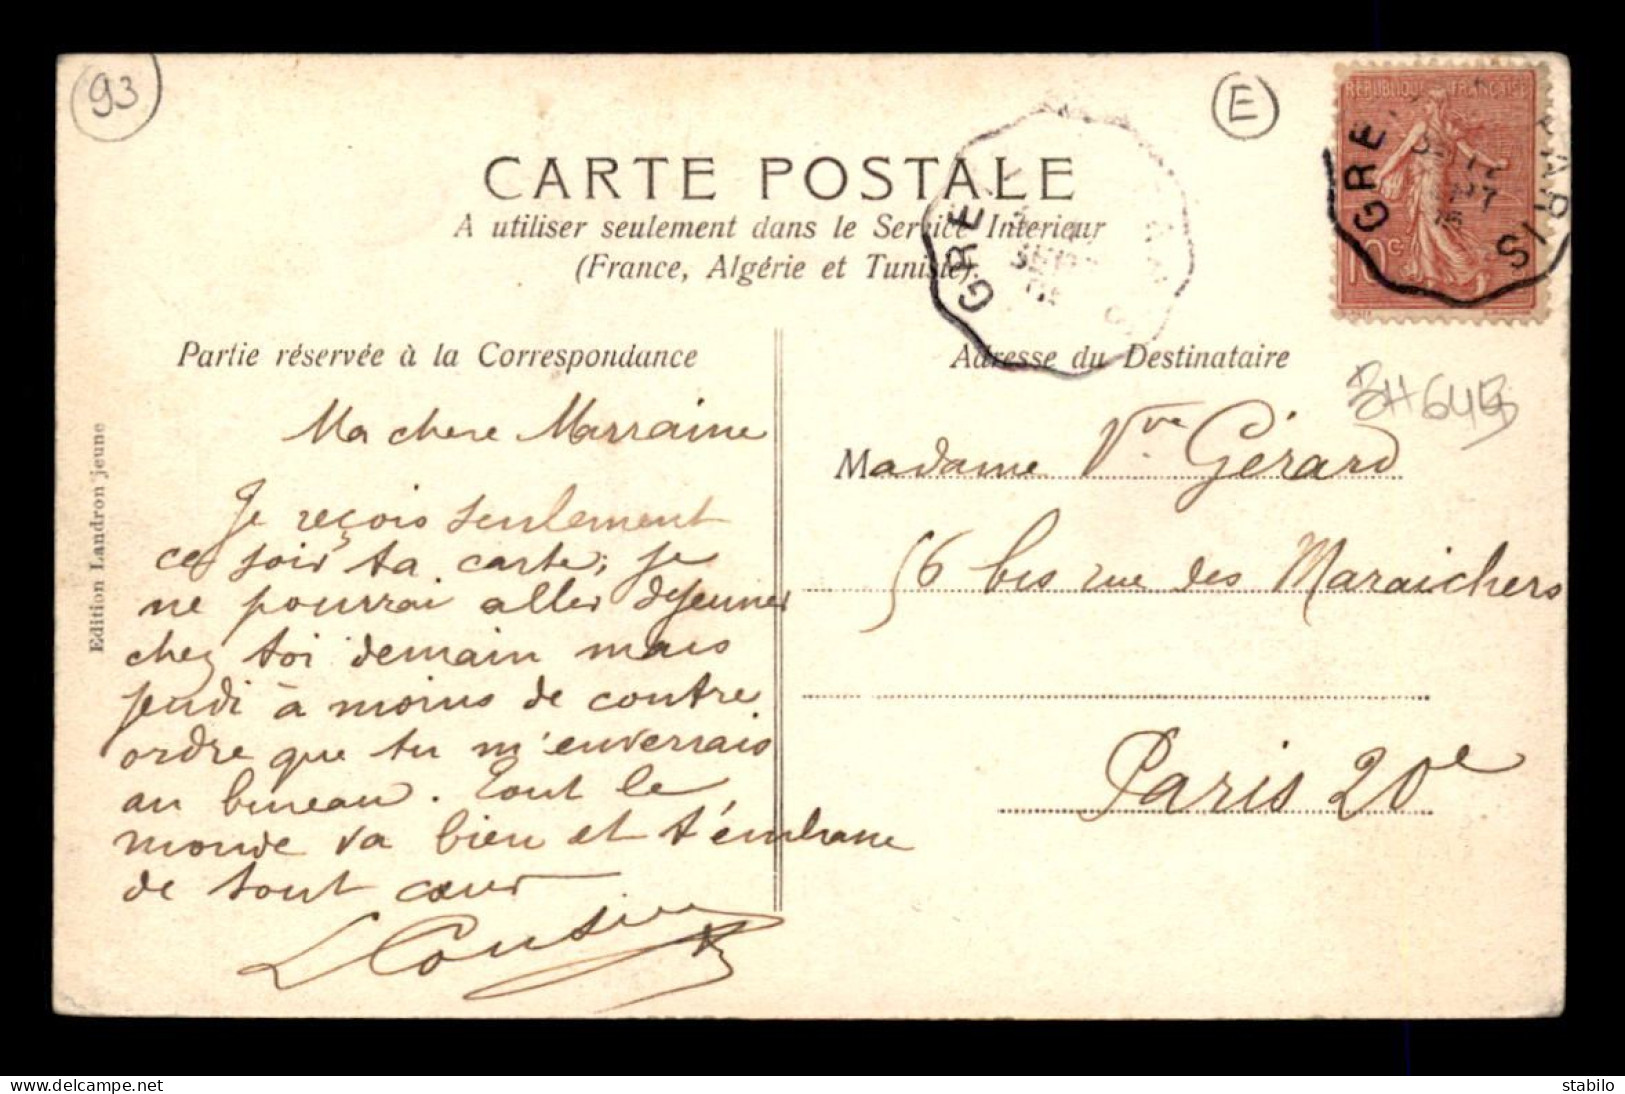 93
E
RÉPUBLIQUE FRANÇAISE
10c
GRE
PARIS
CARTE POSTALE
A utiliser seulement dans le Service Interieur
(France, Algérie et Tunisie).
GRE
Partie réservée à la Correspondance
Adresse du Destinataire
Edition Landron jeune
Ma chere Marraine
Je reçois seulement
ce soir ta carte; je
ne pourrai aller dejeuner
chez toi demain mais
jeudi à moins de contre
ordre que tu m'enverrais
au bureau. Tout le
monde va bien et t'embrasse
de tout cœur
L Cousin
Madame Vve Gérard
56 bis rue des Maraichers
Paris 20e
delcampe.net
stabilo